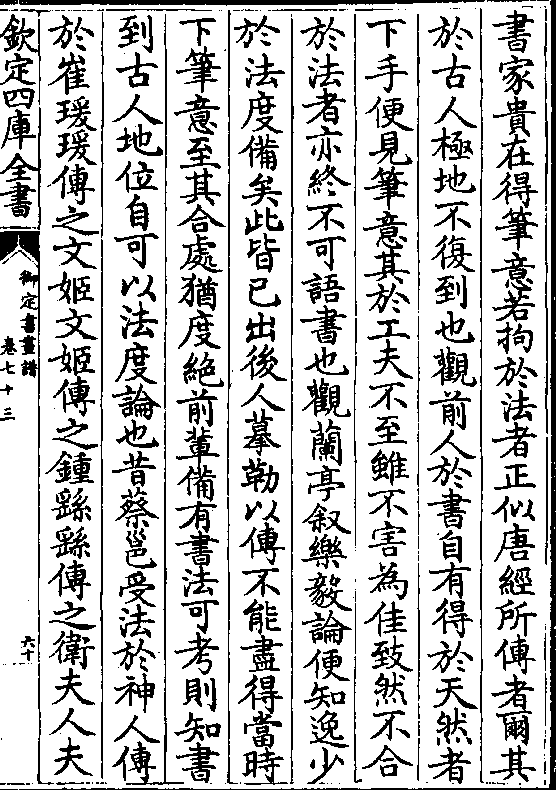 書家貴在得筆意若拘於法者正似唐經所傳者爾其
於古人極地不復到也觀前人於書自有得於天然者
下手便見筆意其於工夫不至雖不害為佳致然不合
於法者亦終不可語書也觀蘭亭叙樂毅論便知逸少
於法度備矣此皆已出後人摹勒以傳不能盡得當時
下筆意至其合處猶度絶前輩備有書法可考則知書
到古人地位自可以法度論也昔蔡邕受法於神人傳
於崔瑗瑗傳之文姬文姬傳之鍾繇繇傳之衛夫人夫
欽定四庫全書
御定書畫譜
卷七十三
六十